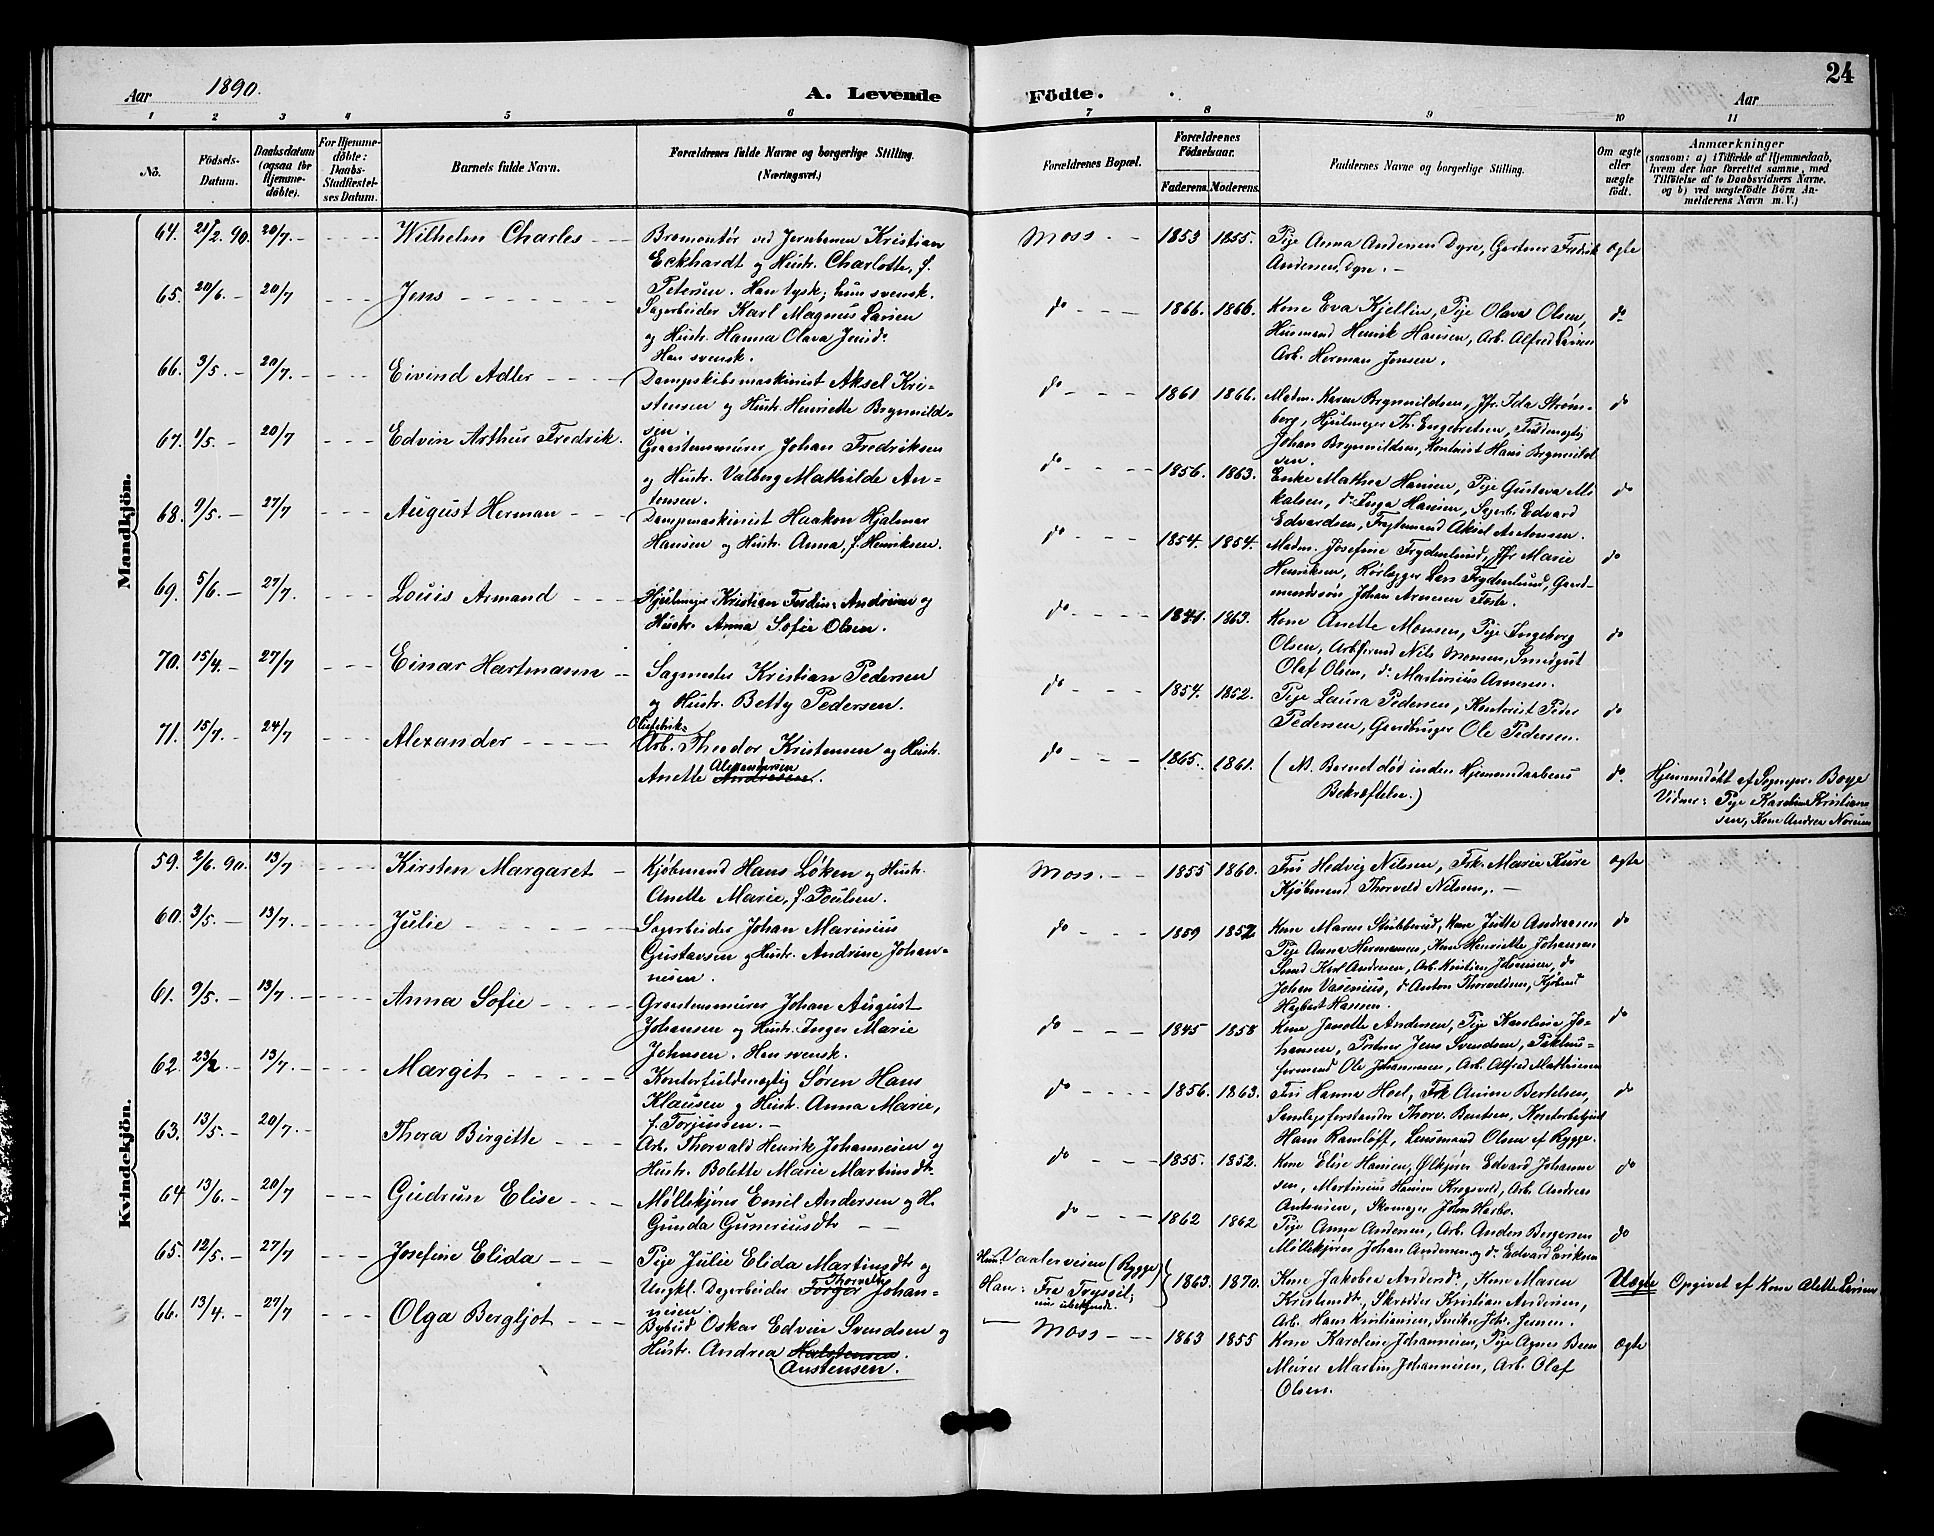 24
Aar 1890.
A. Levende Födte.
Aar
1 2 3 4 5 6 7 8 9 10 11
No.
Födsels-
Datum.
Daabsdatum
(ogsaa for
Hjemme-
döbte).
For Hjemme-
döbte:
Daabs-
Stadfæstel-
ses Datum.
Barnets fulde Navn.
Forældrenes fulde Navne og borgerlige Stilling.
(Næringsvei.)
Forældrenes Bopæl.
Forældrenes
Födselsaar.
Faderens. Moderens.
Faddernes Navne og borgerlige Stilling.
Om ægte
eller
uægte
födt.
Anmærkninger
(saasom: a) i Tilfælde af Hjemmedaab,
hvem der har forrettet samme, med
Tilföielse af to Daabsvidners Navne,
og b) ved uægtefödte Börn An-
melderens Navn m. V.)
Mandkjön.
64. 21/2 90. 20/7 Wilhelm Charles
Kristian
Eckhardt og Hustr. Charlotte, f.
Petersen. Han tysk; hun svensk.
Moss 1853 1855.
Pige Anna Andersen Dyre, Gartner Fredrik
Andersen Dyre.
ægte
65. 20/6 20/7 Jens
Sagarbeider Karl Magnus Larsen
og Hustr. Hanna Olava Jensd.
Han svensk.
do 1866. 1866.
Kone Eva Kjellin, Pige Olava Olsen,
Husmand Henrik Hansen, Arb. Alfred Larsen
Arb. Herman Jensen.
do
66. 3/5 20/7 Eivind Adler
Dampskibsmaskinist Aksel Kri-
stensen og Hustr. Henriette Brynnild-
sen.
do 1861 1866.
Madm. Karen Brynnildsen, Jfr. Ida Strøm-
berg, Hjulmager Th. Engebretsen, Fuldmægtig
Johan Brynnildsen, Kontorist Hans Brynnild-
sen.
do
67. 1/5 20/7 Edvin Arthur Fredrik.
Graastensmurer Johan Fredriksen
og Hustr. Valborg Mathilde An-
tensen.
do 1856. 1863.
Enke Mathea Hansen, Pige Gustava Mi-
kalsen, do Inga Hansen, Sagarb. Edvard
Edvardsen, Aksel Antonsen.
do
68. 9/5 27/7 August Herman
Dampmaskinist Haakon Hjalmar
Hansen og Hustr. Anna, f. Henriksen.
do 1854. 1854.
Madm. Josefine Frydenlund, Jfr. Marie
Henriksen, Rørlægger Lars Frydenlund, Gaard-
mandssøn Johan Arnesen
do
69. 5/6 27/7 Louis Armand
Hjulmager Kristian Ferdin. Andersen og
Hustr. Anna Sofie Olsen.
do 1841. 1863.
Kone Anette Monsen, Pige Ingeborg
Olsen, Nils Monsen, Smedgut
Olaf Olsen, do Martinius Arnesen.
do
70. 15/4 27/7 Einar Hartmann
Sagmester Kristian Pedersen
og Hustr. Betty Pedersen.
do 1854. 1852.
Pige Laura Pedersen, Kontorist Peder
Pedersen, Gaardbruger Ole Pedersen.
do
71. 15/7 24/7 Alexander
Arb. Theodor Kristensen og Hustr.
Anette Alexandersen Andresen.
do 1865. 1861.
(NB. Barnet död inden Hjemmedaabens
Bekræftelse.)
do.
Hjemmedöbt af Sognepr. Boye
Vidner: Pige Karoline Kristian-
sen, Kone Andrea
Kvindekjön.
59. 2/6 90. 13/7 Kirsten Margaret
Kjøbmand Hans Løken og Hustr.
Anette Marie, f. Poulsen.
Moss. 1855 1860.
Fru Hedvig Nilsen, Frk. Marie Kure
Kjøbmand Thorvald Nilsen.
ægte
60. 3/5. 13/7. Julie
Sagarbeider Johan Marinius
Gustavsen og Hustr. Andrine Johan-
nesen.
do 1859 1852
Kone Maren Stubberud, Kone Jutte Andreasen
Pige Anna Hermansen, Kone Henriette Johansen
Smed Karl Andresen, Arb. Kristian Johansen, do
Johan Vasenius, do Anton Thorvaldsen,
Hansen.
do
61. 9/5. 13/7. Anna Sofie
Graastensmurer Johan August
Johansen og Hustr. Inger Marie
Johnsen. Han svensk.
do 1845 1858
Kone Janette Andersen, Pige Karoline Jo-
hansen, Portner Jens Svendsen,
formand Ole Johannesen, Arb. Alfred Mathisen
do
62. 23/2 13/7. Margit
Kontorfuldmægtig Søren Hans
Klausen og Hustr. Anna Marie,
f. Torjussen.
do 1856. 1863.
Fru Hanna Hoel, Frk Bertelsen,
Samlagsforstander Thorv. Berntsen,
Hans Ramløft, Lensmand Olsen af Rygge.
do
63. 13/5. 20/7. Thora Birgitte
Arb. Thorvald Henrik Johannesen og
Hustr. Bolette Marie Martinsdt.
do 1855. 1852.
Kone Elise Hansen, Ølkjører Edvard Johanne-
sen, Martinius Hansen Krogsvold, Arb. Andreas
Antonsen, Skomager John Harbo.
do
64 13/6. 20/7 Gudrun Elise
Møllekjører Emil Andersen og H.
Gunda Guneriusdt.
do 1862 1862
Pige Anne Andersen, Arb. Anders Bergersen
Møllekjører Johan Andersen og do. Edvard Eriksen
do
65. 12/5. 27/7 Josefine Elida
Pige Julie Elida Martinsdt. og
Ungkl. Dagarbeider Forger Johan-
nesen.
Hun: Vaalerveien (Rygge)
Han: Fra Trysil,
nu ubekjendt.
1863. 1870.
Kone Jakobea Andersdt., Kone Maren
Kristensdt., Skrædder Kristian Andersen,
Arb. Hans Kristiansen, Snedker Johs. Jensen.
Uægte Opgivet af Kone Alette Larsen
66. 13/4. 27/7 Olga Bergljot
Bybud Oskar Edvin Svendsen og
Hustr. Andrea Halstensen.
Austensen.
Moss 1863 1855
Kone Karoline Johannesen, Pige Agnes Bern
Murer Martin Johannesen, Arb. Olaf
Olsen.
ægte